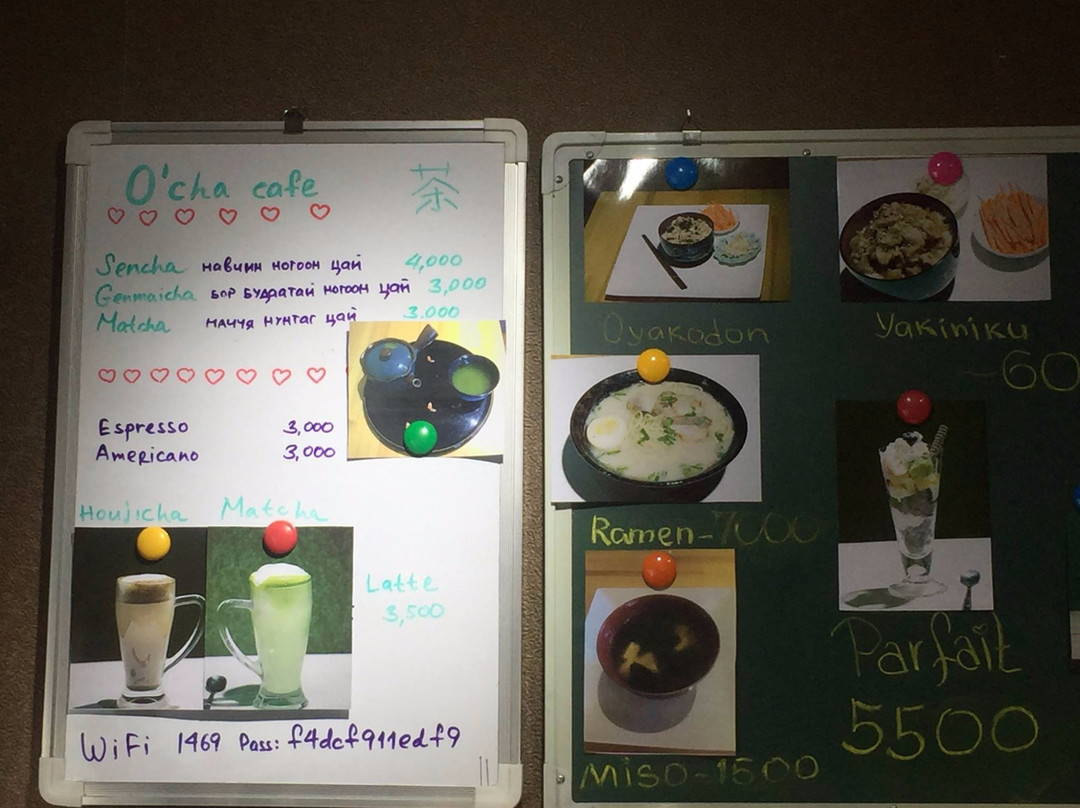 O'cha cafe 茶
Sencha навчин ногоон цай 4,000
Genmaicha бор будаатай ногоон цай 3,000
Matcha маччя нунтаг цай 3.000
Espresso 3,000
Americano 3,000
Houjicha Matcha
Latte
3,500
WiFi 1469 Pass: f4dcf911edf9
Oyakodon
Yakiniku
-60
Ramen-7000
Parfait
5500
Miso-1500